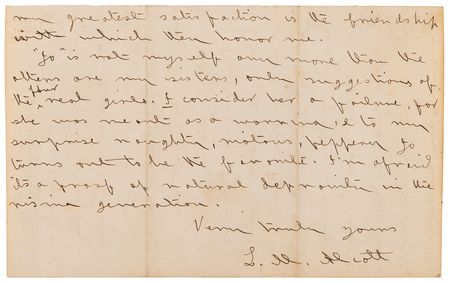 my greatest satisfaction is the friendship
with which they honor me.
"Jo" is not myself any more than the
others are my sisters, only suggestions of
the four real girls. I consider her a failure, for
she was meant as a warning, & to my
surprise naughty, riotous, peppery Jo
turns out to be the favorite. I'm afraid
its a proof of natural depravity in the
rising generation.
Very truly yours
L. M. Alcott